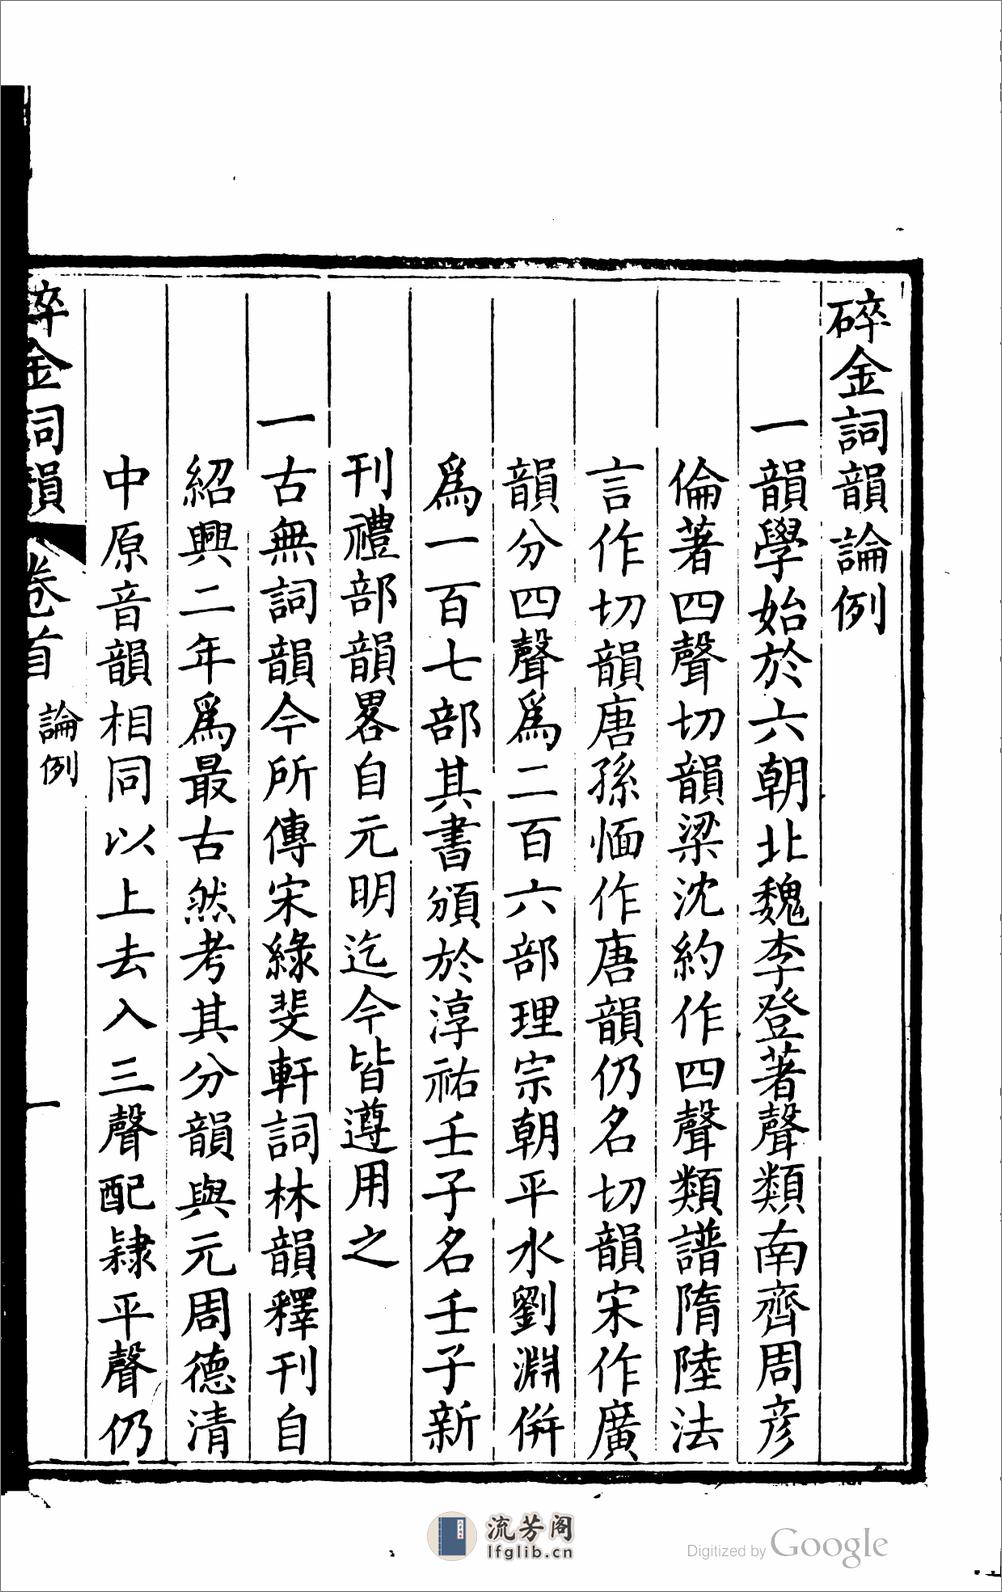 碎金詞韻論例
一韻學始於六朝北魏李登著聲類南齊周彦
倫著四聲切韻梁沈約作四聲類譜隋陸法
言作切韻唐孫愐作唐韻仍名切韻宋作廣
韻分四聲爲二百六部理宗朝平水劉淵倂
爲一百七部其書頒於淳祐壬子名壬子新
刊禮部韻畧自元明迄今皆遵用之
一古無詞韻今所傳宋綠斐軒詞林韻釋刊自
紹興二年爲最古然考其分韻與元周德清
中原音韻相同以上去入三聲配隷平聲仍
碎金詞韻 卷首 論例 一
流芳阁
lfglib.cn
Digitized by Google